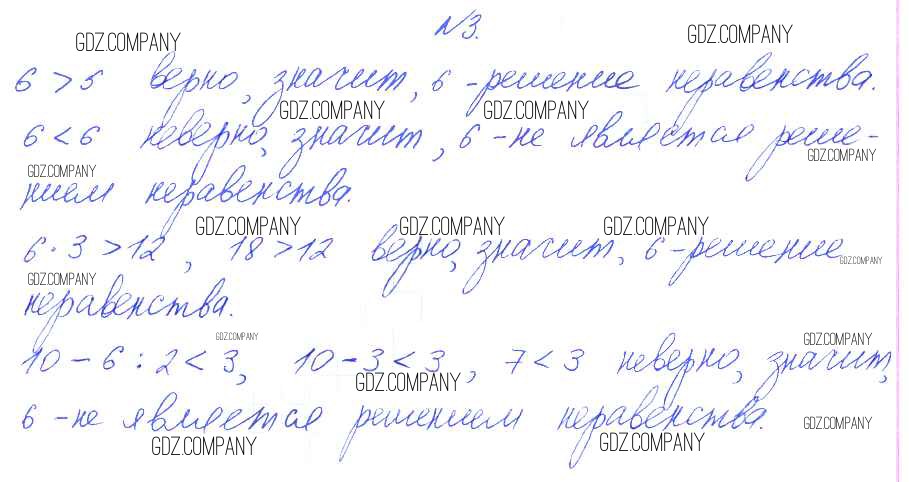 №3.
GDZ.COMPANY GDZ.COMPANY
6 > 5 верно, значит, 6 - решение неравенства.
GDZ.COMPANY GDZ.COMPANY
6 < 6 неверно, значит, 6 - не является реше-
GDZ.COMPANY GDZ.COMPANY
нием неравенства.
GDZ.COMPANY GDZ.COMPANY GDZ.COMPANY
6 · 3 > 12, 18 > 12 верно, значит, 6 - решение
GDZ.COMPANY GDZ.COMPANY
неравенства.
GDZ.COMPANY GDZ.COMPANY
10 - 6 : 2 < 3, 10 - 3 < 3, 7 < 3 неверно, значит,
GDZ.COMPANY
6 - не является решением неравенства.
GDZ.COMPANY
GDZ.COMPANY GDZ.COMPANY